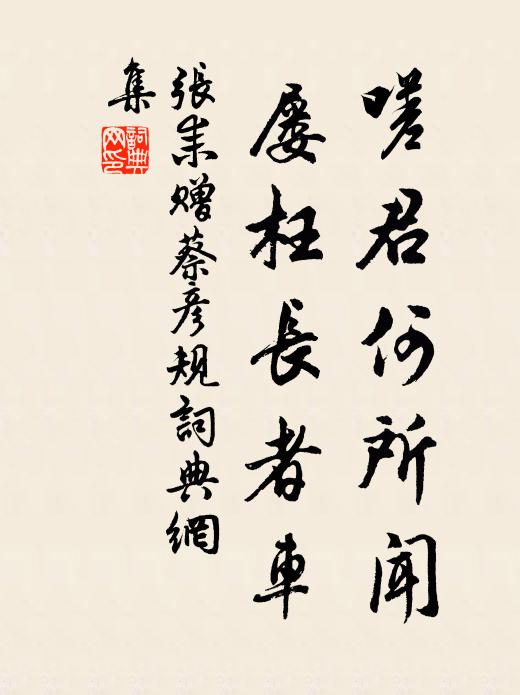 嗟君何所聞
屢枉長者車
張耒贈蔡彥規詞典網
集
詞典
网印